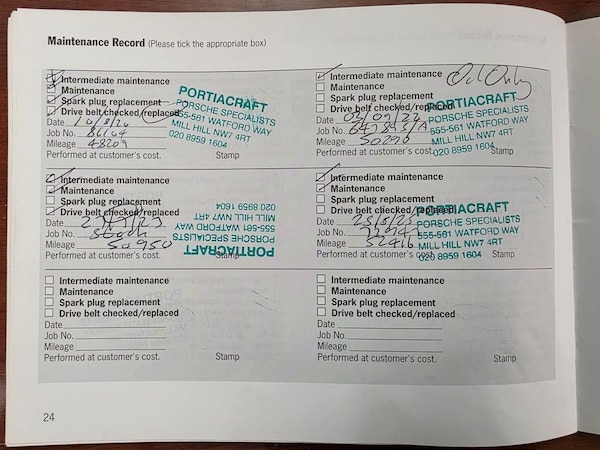 Maintenance Record (Please tick the appropriate box)
Intermediate maintenance
Maintenance
Spark plug replacement
Drive belt checked/replaced
Date 10/8/20
Job No. 86164
Mileage 48209
Performed at customer's cost. Stamp
PORTIACRAFT
PORSCHE SPECIALISTS
555-561 WATFORD WAY
MILL HILL NW7 4RT
020 8959 1604
Intermediate maintenance
Oil Only
Maintenance
Spark plug replacement
Drive belt checked/replaced
Date 02/09/22
Job No.
Mileage 50290
Performed at customer's cost. Stamp
PORTIACRAFT
PORSCHE SPECIALISTS
555-561 WATFORD WAY
MILL HILL NW7 4RT
020 8959 1604
Intermediate maintenance
Maintenance
Spark plug replacement
Drive belt checked/replaced
Date
Job No.
Mileage 50950
Performed at customer's cost. Stamp
PORTIACRAFT
PORSCHE SPECIALISTS
555-561 WATFORD WAY
MILL HILL NW7 4RT
020 8959 1604
Intermediate maintenance
Maintenance
Spark plug replacement
Drive belt checked/replaced
Date
Job No.
Mileage 52416
Performed at customer's cost. Stamp
PORTIACRAFT
PORSCHE SPECIALISTS
555-561 WATFORD WAY
MILL HILL NW7 4RT
020 8959 1604
Intermediate maintenance
Maintenance
Spark plug replacement
Drive belt checked/replaced
Date
Job No.
Mileage
Performed at customer's cost. Stamp
Intermediate maintenance
Maintenance
Spark plug replacement
Drive belt checked/replaced
Date
Job No.
Mileage
Performed at customer's cost. Stamp
24